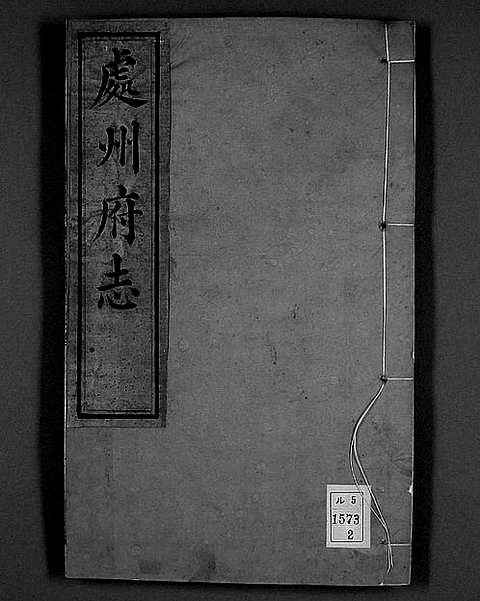 處州府志
ル 5
1573
2